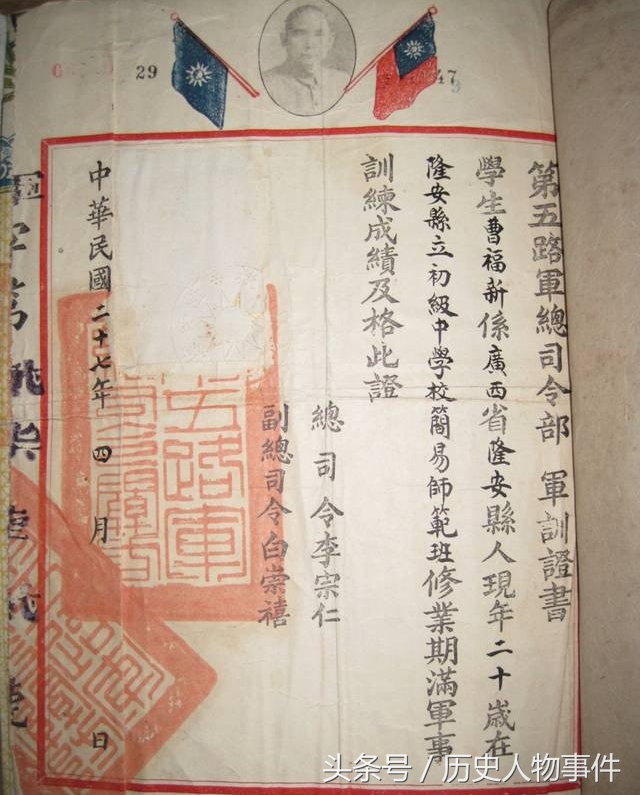 29
47
第五路軍總司令部 軍訓證書
學生曹福新係廣西省隆安縣人現年二十歲在
隆安縣立初級中學校簡易師範班修業期滿軍事
訓練成績及格此證
總司令李宗仁
副總司令白崇禧
中華民國二十七年四月 日
头条号／历史人物事件